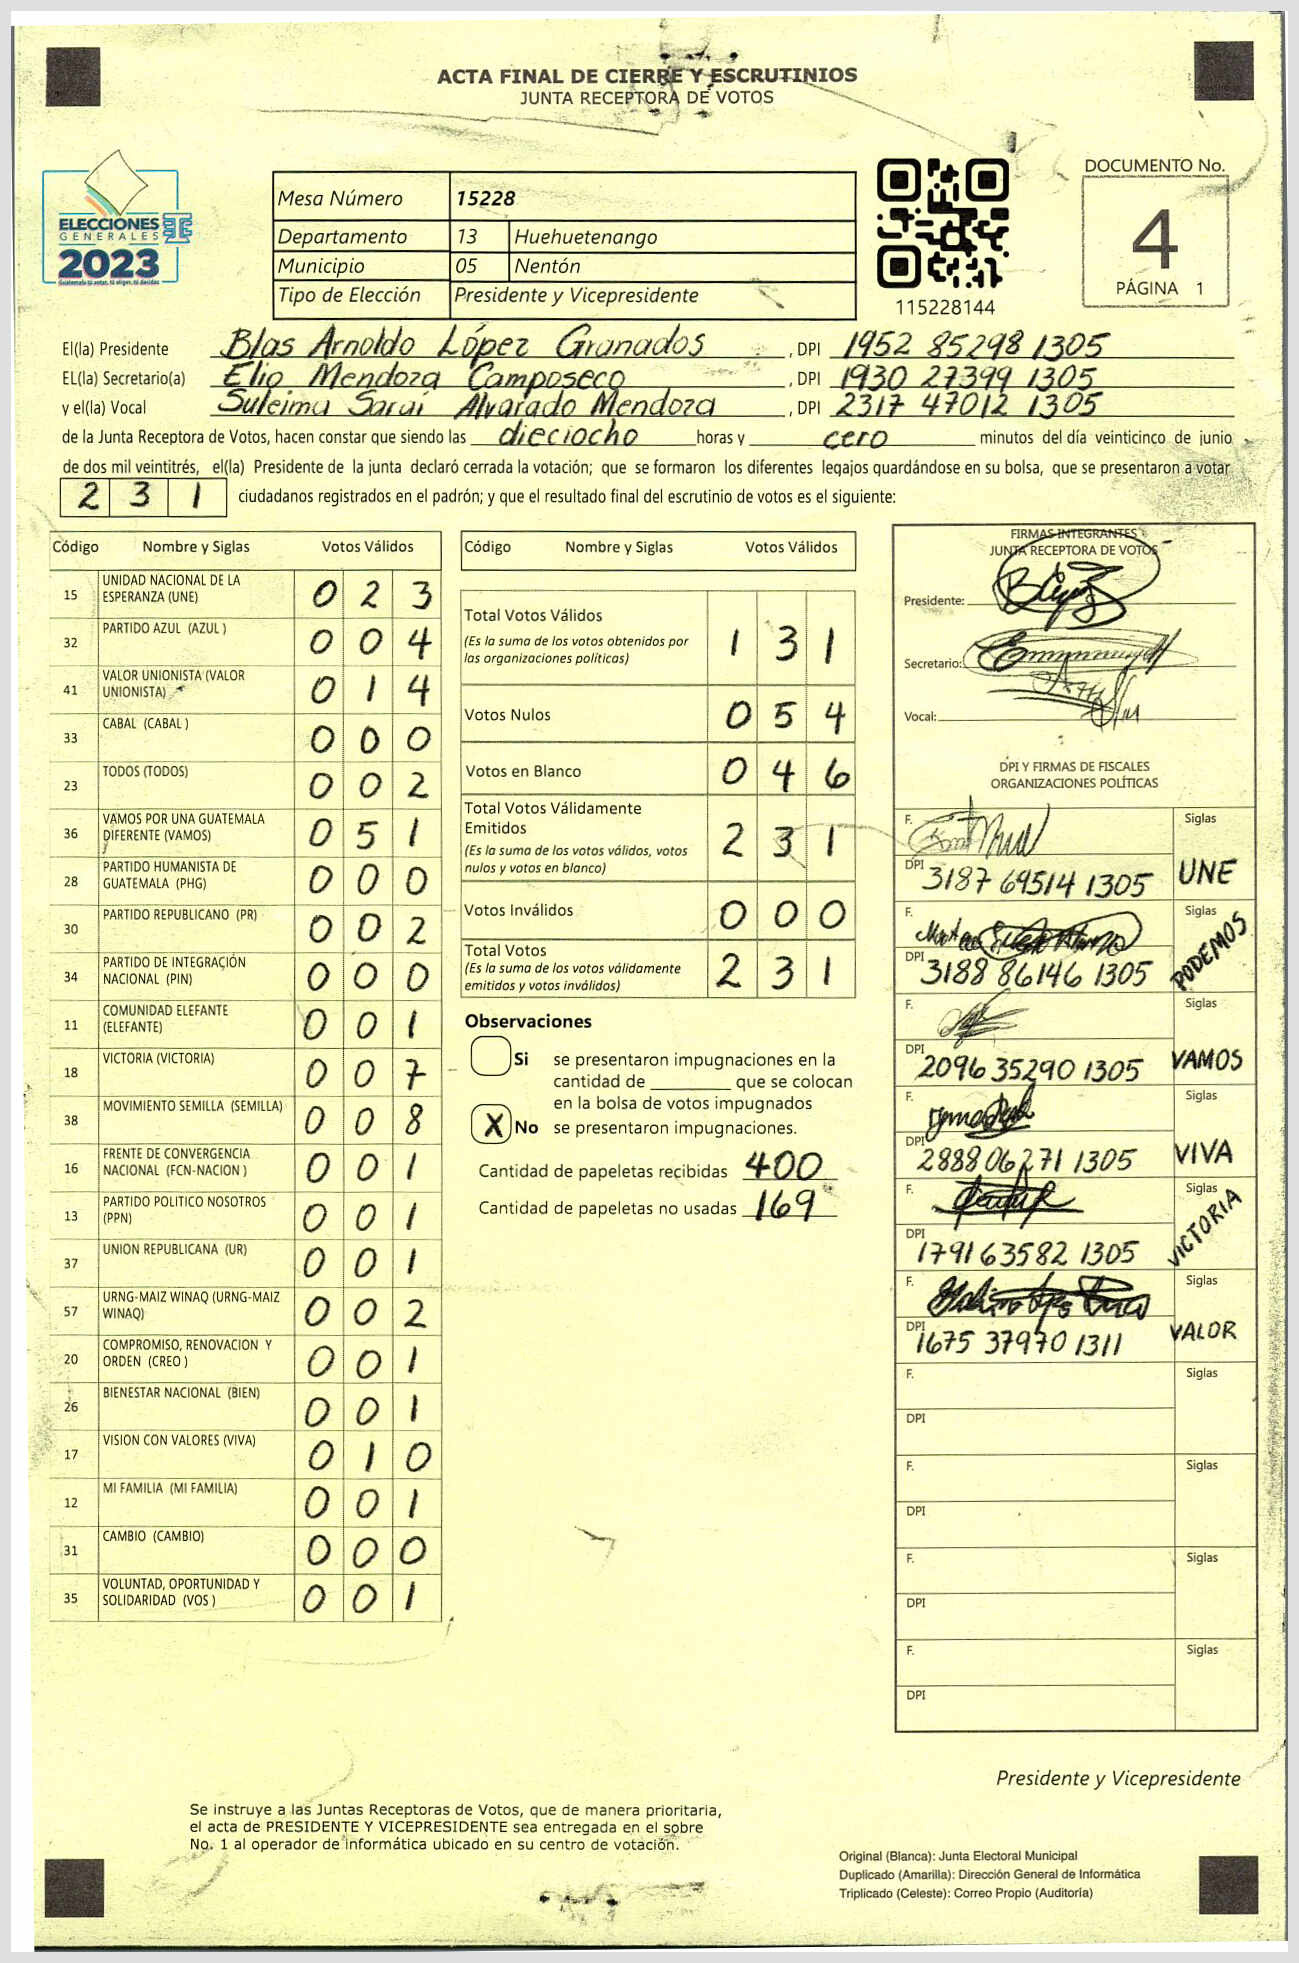 ACTA FINAL DE CIERRE Y ESCRUTINIOS
JUNTA RECEPTORA DE VOTOS
ELECCIONES
GENERALES
2023
Guatemala tú votas, tú eliges, tú decides
Mesa Número 15228
Departamento 13 Huehuetenango
Municipio 05 Nentón
Tipo de Elección Presidente y Vicepresidente
115228144
DOCUMENTO No.
4
PÁGINA 1
El(la) Presidente Blas Arnoldo López Granados, DPI 1952 85298 1305
EL(la) Secretario(a) Elio Mendoza Camposeco, DPI 1930 27399 1305
y el(la) Vocal Suleima Saraí Alvarado Mendoza, DPI 2317 47012 1305
de la Junta Receptora de Votos, hacen constar que siendo las dieciocho horas y cero minutos del día veinticinco de junio
de dos mil veintitrés, el(la) Presidente de la junta declaró cerrada la votación; que se formaron los diferentes legajos quardándose en su bolsa, que se presentaron a votar
231 ciudadanos registrados en el padrón; y que el resultado final del escrutinio de votos es el siguiente:
Código Nombre y Siglas Votos Válidos
15 UNIDAD NACIONAL DE LA ESPERANZA (UNE) 023
32 PARTIDO AZUL (AZUL ) 004
41 VALOR UNIONISTA (VALOR UNIONISTA) 014
33 CABAL (CABAL ) 000
23 TODOS (TODOS) 002
36 VAMOS POR UNA GUATEMALA DIFERENTE (VAMOS) 051
28 PARTIDO HUMANISTA DE GUATEMALA (PHG) 000
30 PARTIDO REPUBLICANO (PR) 002
34 PARTIDO DE INTEGRACIÓN NACIONAL (PIN) 000
11 COMUNIDAD ELEFANTE (ELEFANTE) 001
18 VICTORIA (VICTORIA) 007
38 MOVIMIENTO SEMILLA (SEMILLA) 008
16 FRENTE DE CONVERGENCIA NACIONAL (FCN-NACION ) 001
13 PARTIDO POLITICO NOSOTROS (PPN) 001
37 UNION REPUBLICANA (UR) 001
57 URNG-MAIZ WINAQ (URNG-MAIZ WINAQ) 002
20 COMPROMISO, RENOVACION Y ORDEN (CREO ) 001
26 BIENESTAR NACIONAL (BIEN) 001
17 VISION CON VALORES (VIVA) 010
12 MI FAMILIA (MI FAMILIA) 001
31 CAMBIO (CAMBIO) 000
35 VOLUNTAD, OPORTUNIDAD Y SOLIDARIDAD (VOS ) 001
Código Nombre y Siglas Votos Válidos
Total Votos Válidos 131
(Es la suma de los votos obtenidos por
las organizaciones políticas)
Votos Nulos 054
Votos en Blanco 046
Total Votos Válidamente
Emitidos 231
(Es la suma de los votos válidos, votos
nulos y votos en blanco)
Votos Inválidos 000
Total Votos 231
(Es la suma de los votos válidamente
emitidos y votos inválidos)
Observaciones
Si se presentaron impugnaciones en la
cantidad de ________ que se colocan
en la bolsa de votos impugnados
X No se presentaron impugnaciones.
Cantidad de papeletas recibidas 400
Cantidad de papeletas no usadas 169
FIRMAS INTEGRANTES
JUNTA RECEPTORA DE VOTOS
Presidente:
Secretario:
Vocal:
DPI Y FIRMAS DE FISCALES
ORGANIZACIONES POLÍTICAS
F. Siglas
DPI 3187 69514 1305 UNE
F. Siglas
DPI 3188 86146 1305 PODEMOS
F. Siglas
DPI 2096 35290 1305 VAMOS
F. Siglas
DPI 2888 06271 1305 VIVA
F. Siglas
DPI 1791 63582 1305 VICTORIA
F. Siglas
DPI 1675 37970 1311 VALOR
F. Siglas
DPI
F. Siglas
DPI
F. Siglas
DPI
F. Siglas
DPI
Presidente y Vicepresidente
Se instruye a las Juntas Receptoras de Votos, que de manera prioritaria,
el acta de PRESIDENTE Y VICEPRESIDENTE sea entregada en el sobre
No. 1 al operador de informática ubicado en su centro de votación.
Original (Blanca): Junta Electoral Municipal
Duplicado (Amarilla): Dirección General de Informática
Triplicado (Celeste): Correo Propio (Auditoría)